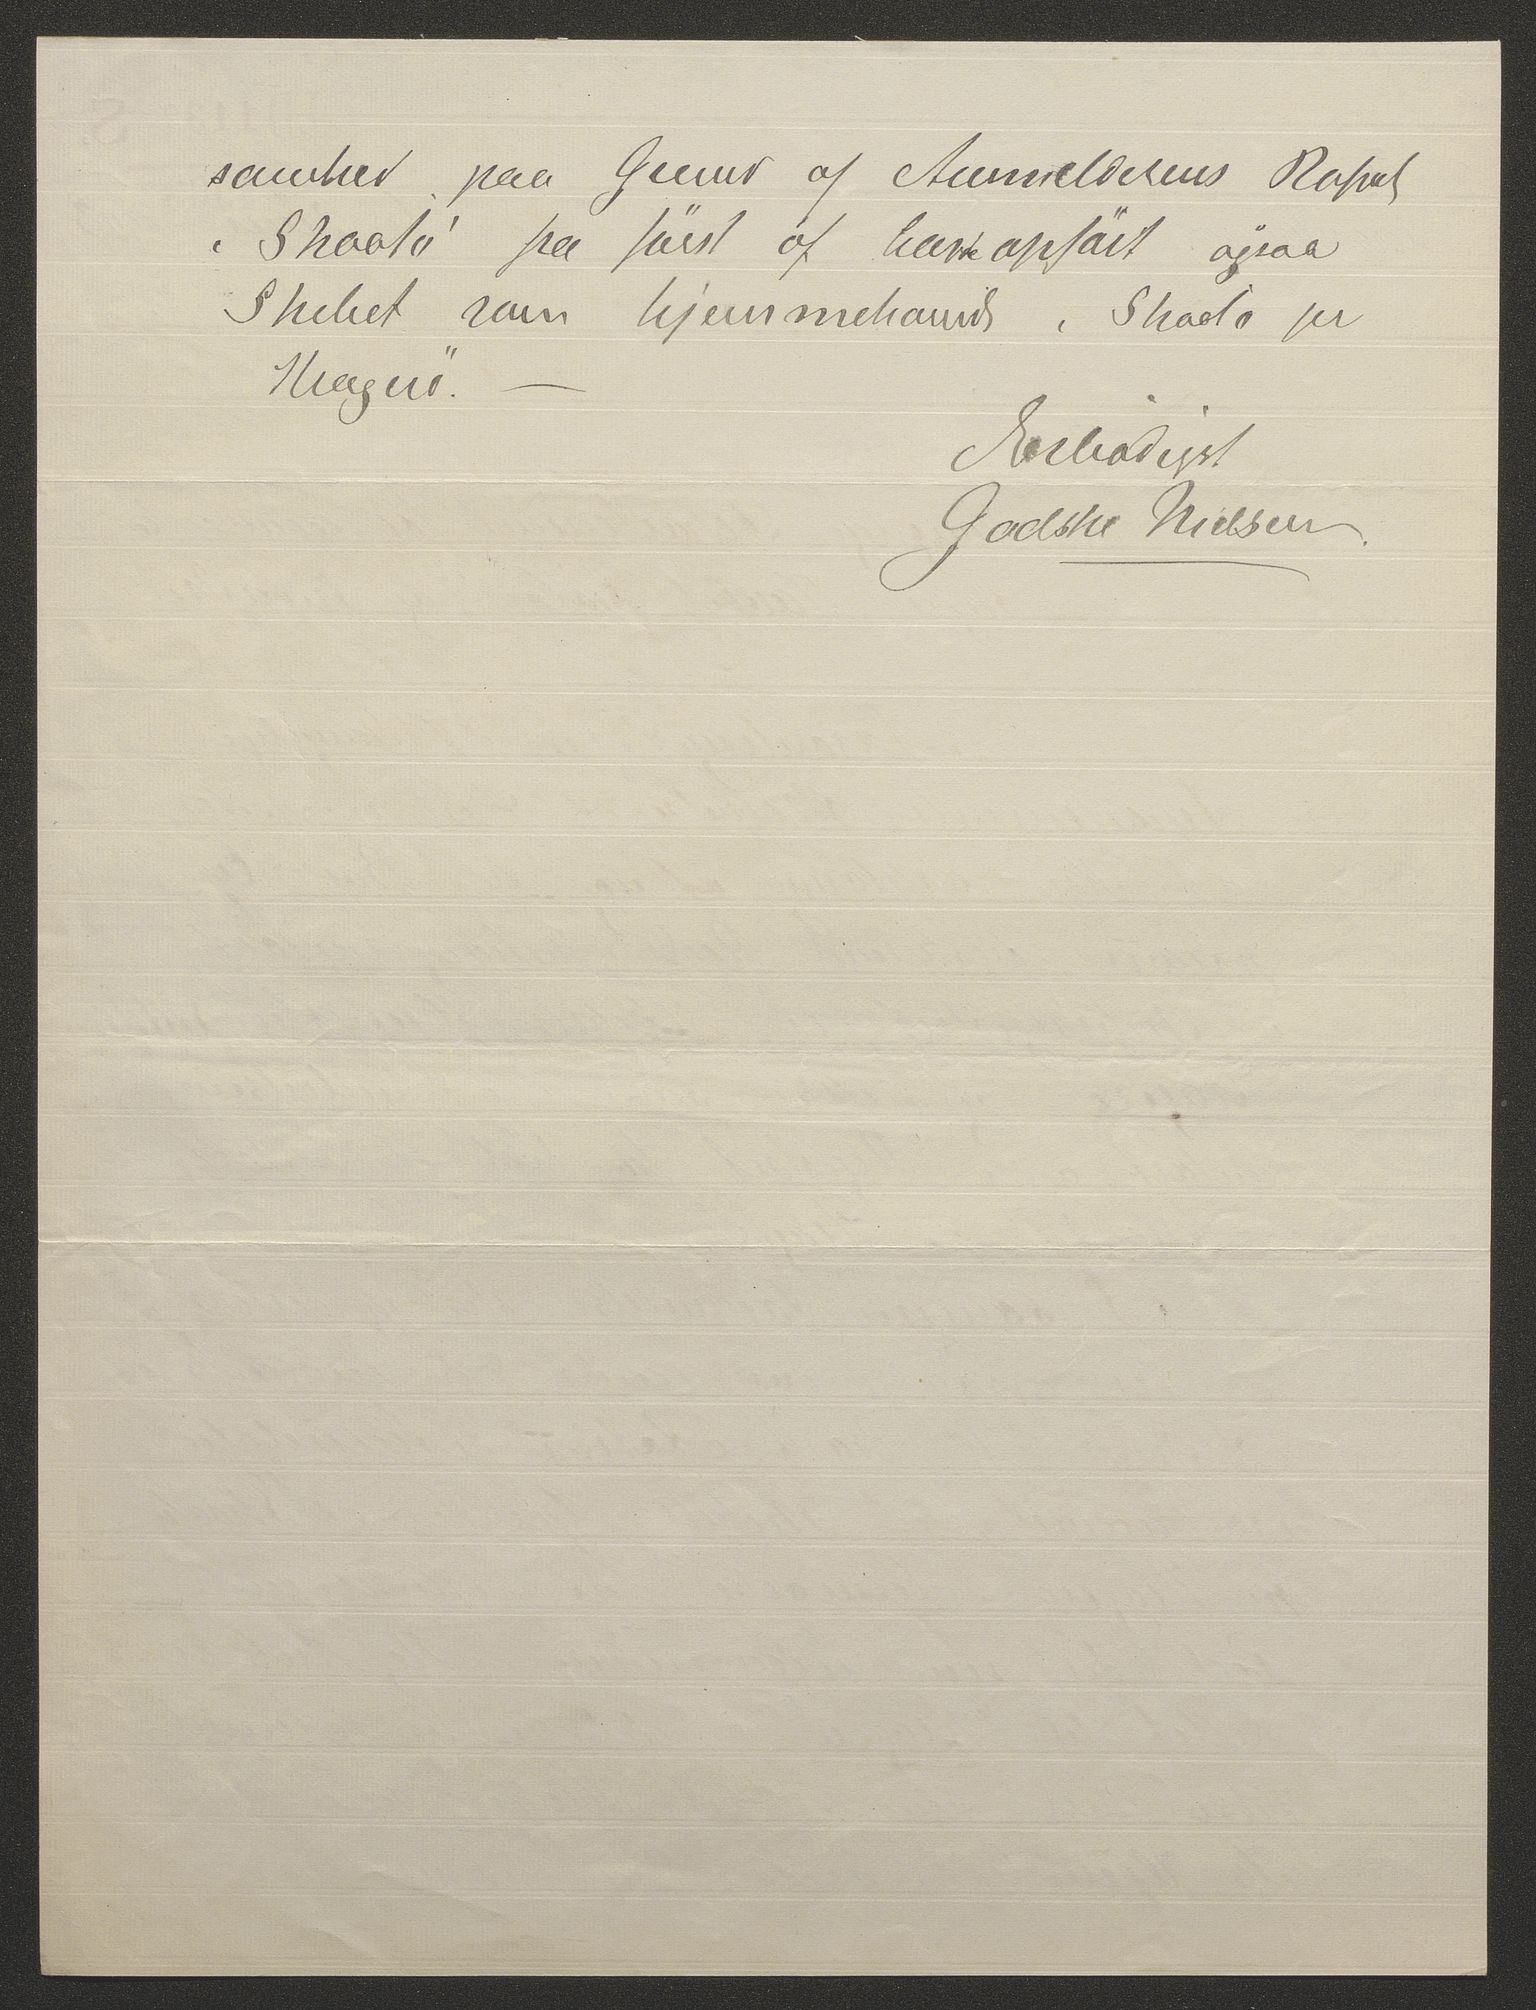 somhed paa Grund af Anmeldelsens Rapport
i Skaatö fra först af har opfört ogsaa
Skibet som hjemmehörende i Skaatö pr
Kragerö. —
Ærbödigst
Godske Nielsen.